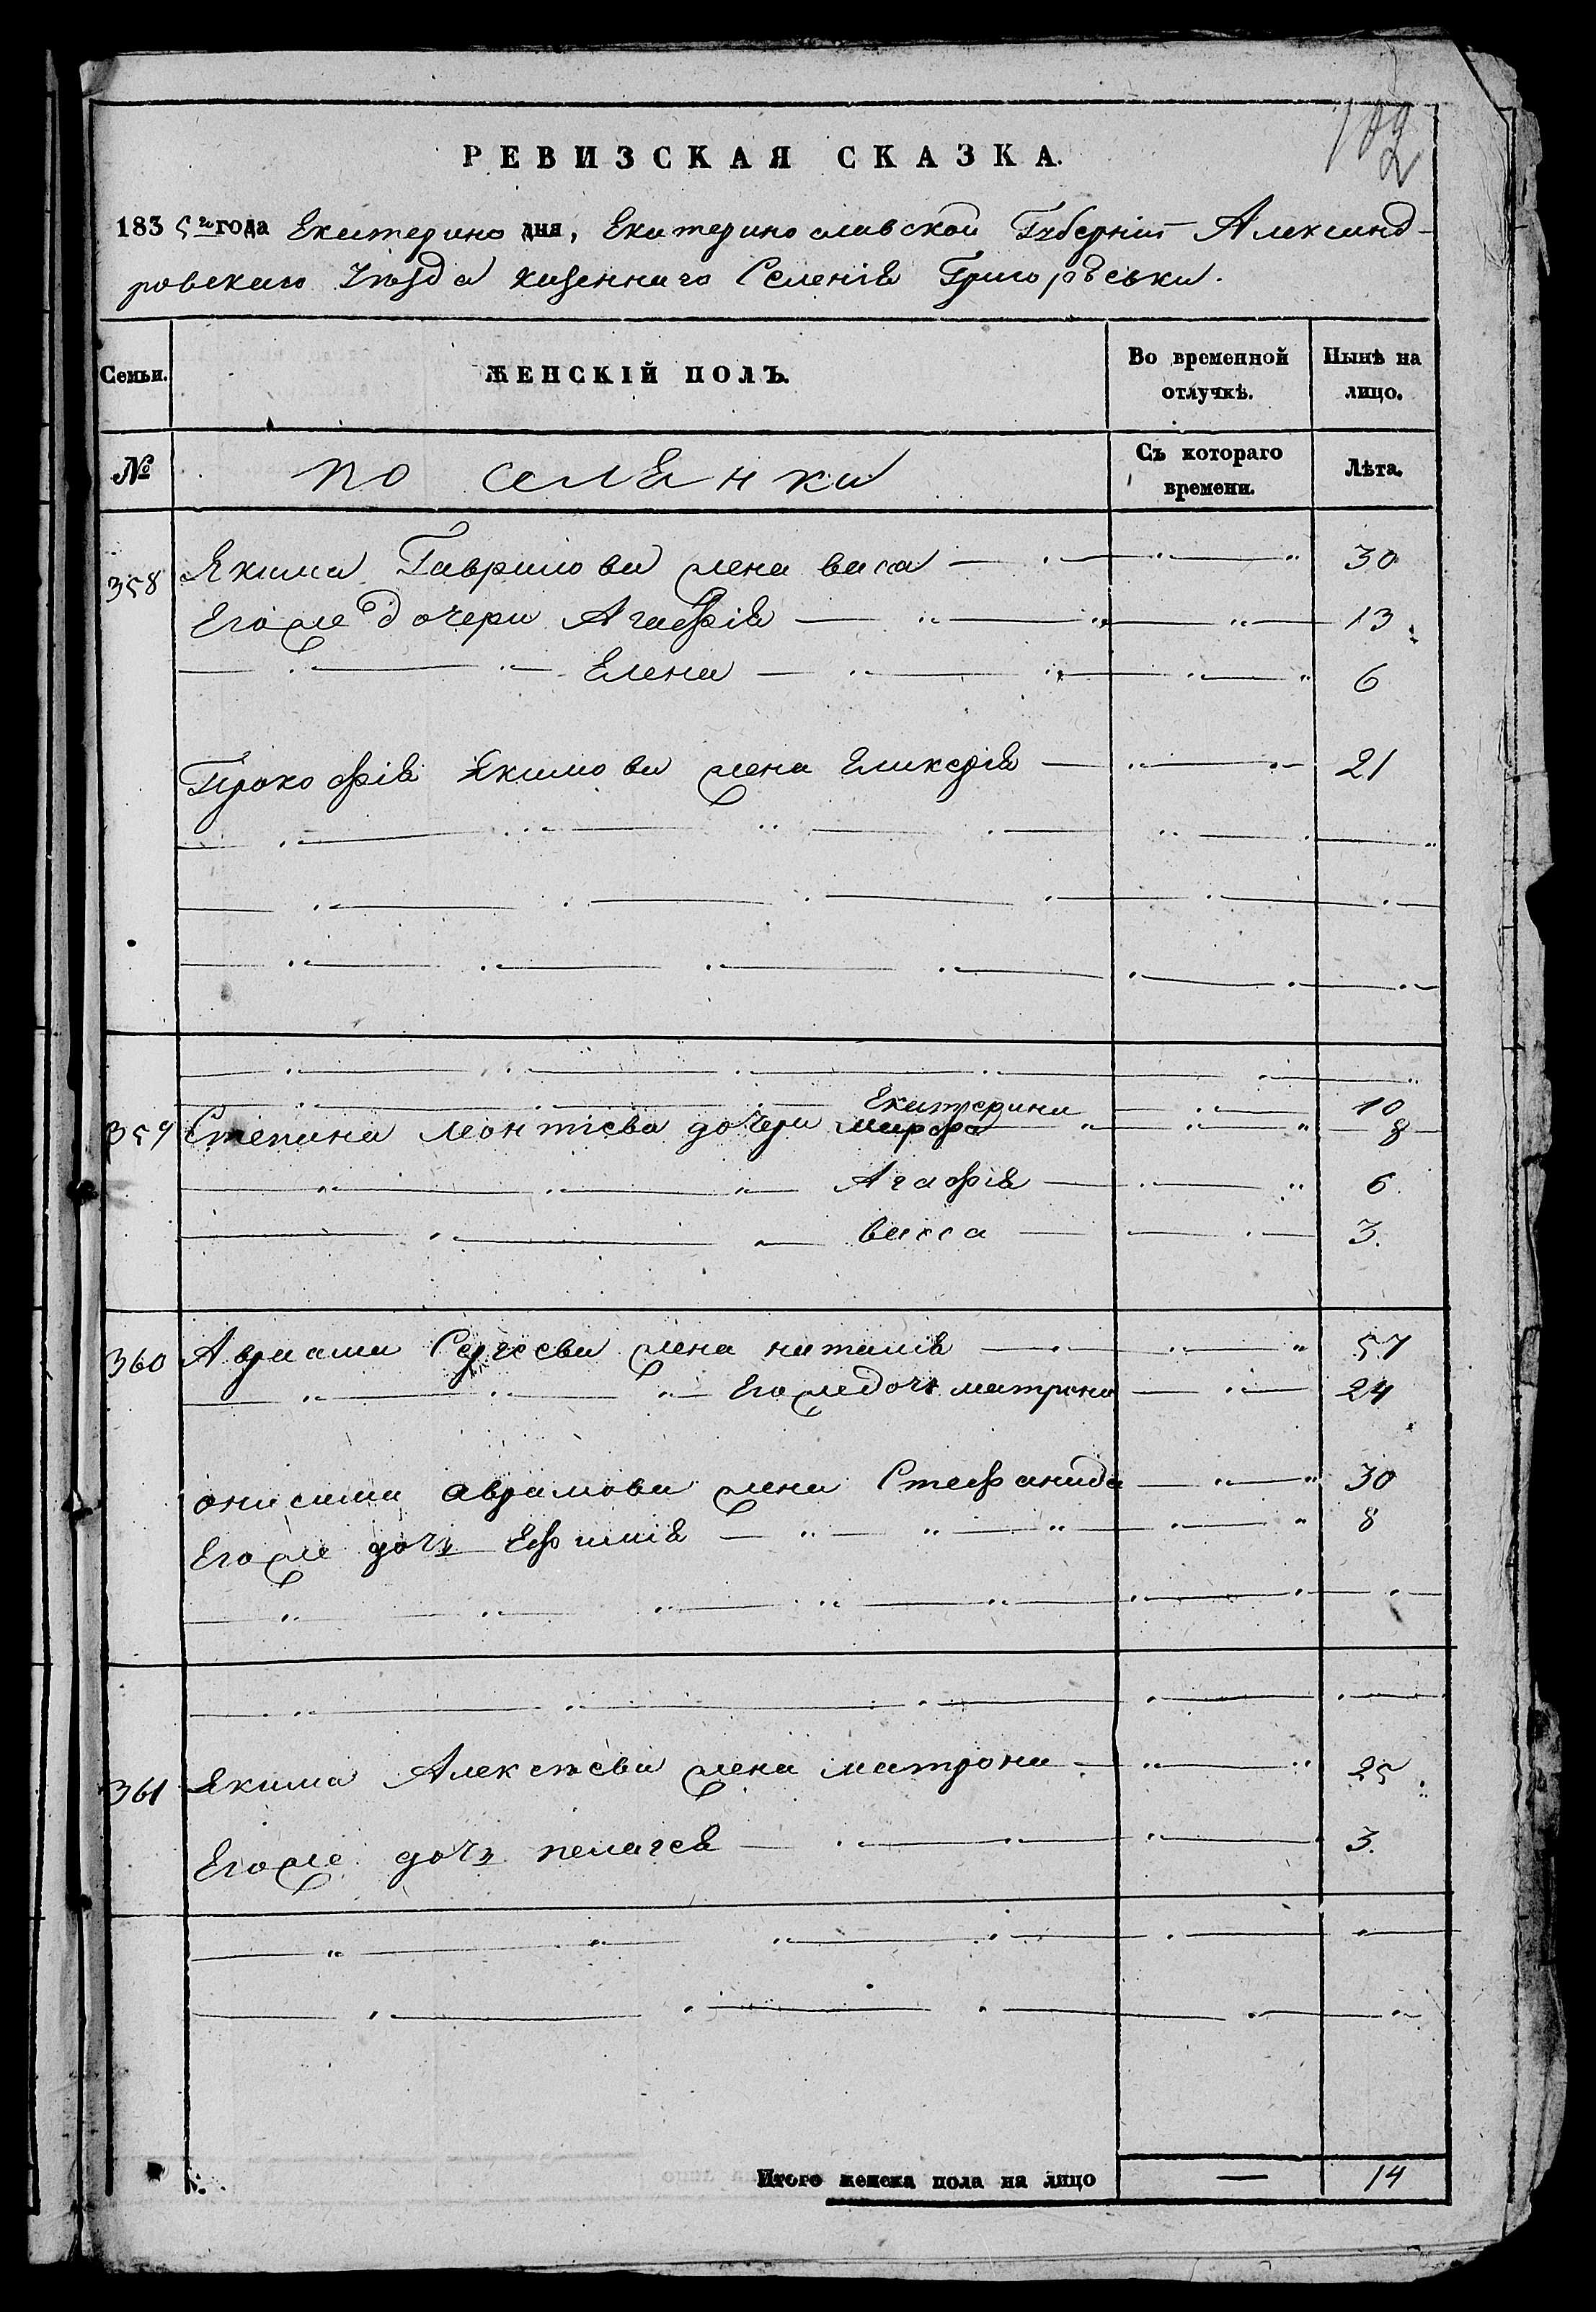 102
РЕВИЗСКАЯ СКАЗКА.
1835 го года Екатерино дня, Екатеринославской Губерніи Александ-
ровскаго Уѣзда казеннаго Селенія Григорѣвки.
Семьи. ЖЕНСКІЙ ПОЛЪ. Во временной отлучкѣ. Нынѣ на лицо.
№ поселянки Съ котораго времени. Лѣта.
358 Якима Гаврилова жена васа 30
Егоже дочери Агафія 13
Елена 6
Прокофія Якимова жена Гликерія 21
Екатерина 10
359 Степана леонтіева дочери марфа 8
Агафія 6
васса 3.
360 Авраама Сергѣева жена наталія 57
Егоже дочъ матрона 24
онисима аврамова жена Стефанида 30
Егоже дочъ Ефимія 8
361 Якима Алексѣева жена матрона 25
Егоже дочъ пелагея 3.
Итого женска пола на лицо — 14